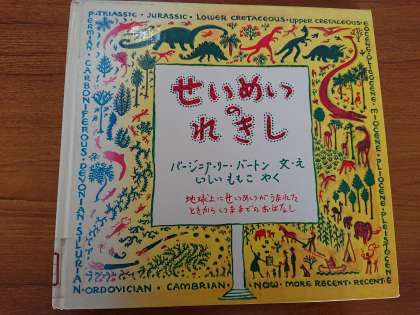 P-TRIASSIC · JURASSIC · LOWER CRETACEOUS · UPPER CRETACEOUS · E
OCENE · OLIGOCENE · MIOCENE · PLIOCENE · PLEISTOCENE
PERMIAN · CARBONIFEROUS · DEVONIAN · SILURIAN
· ORDOVICIAN · CAMBRIAN · NOW · MORE RECENT · RECENT ·
せいめい
の
れきし
バージニア・リー・バートン 文・え
いしい ももこ やく
地球上にせいめいがうまれた
ときからいままでのおはなし